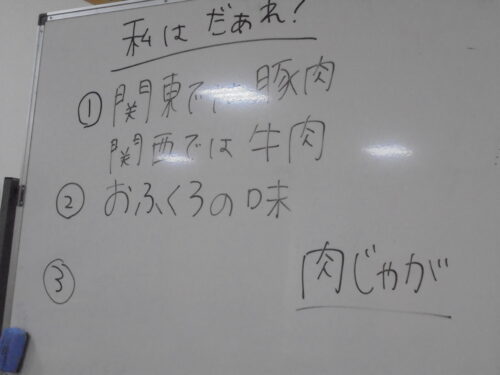 私はだあれ!
① 関東では豚肉
関西では牛肉
② おふくろの味
③
肉じゃが